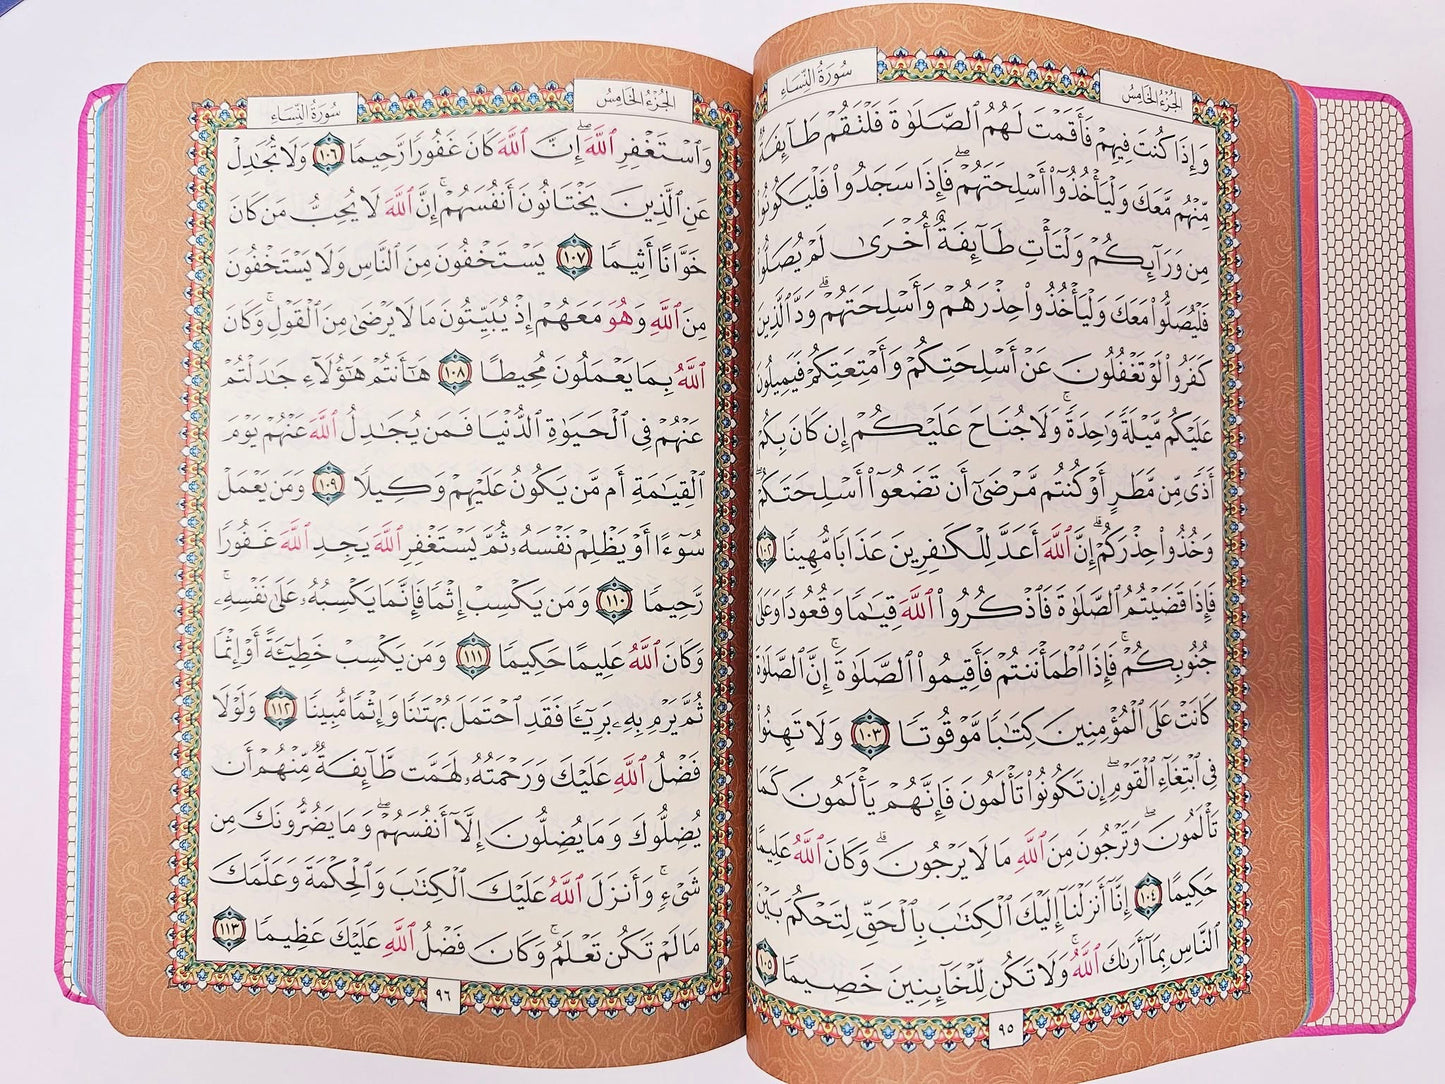 سُورَةُ النِّسَاء
الجُزْءُ الخَامِسُ
وَإِذَا كُنتَ فِيهِمْ فَأَقَمْتَ لَهُمُ ٱلصَّلَوٰةَ فَلْتَقُمْ طَآئِفَةٌ
مِّنْهُم مَّعَكَ وَلْيَأْخُذُوٓا۟ أَسْلِحَتَهُمْ ۖ فَإِذَا سَجَدُوا۟ فَلْيَكُونُوا۟
مِن وَرَآئِكُمْ وَلْتَأْتِ طَآئِفَةٌ أُخْرَىٰ لَمْ يُصَلُّوا۟
فَلْيُصَلُّوا۟ مَعَكَ وَلْيَأْخُذُوا۟ حِذْرَهُمْ وَأَسْلِحَتَهُمْ ۗ وَدَّ ٱلَّذِينَ
كَفَرُوا۟ لَوْ تَغْفُلُونَ عَنْ أَسْلِحَتِكُمْ وَأَمْتِعَتِكُمْ فَيَمِيلُونَ
عَلَيْكُم مَّيْلَةً وَٰحِدَةً ۚ وَلَا جُنَاحَ عَلَيْكُمْ إِن كَانَ بِكُمْ
أَذًى مِّن مَّطَرٍ أَوْ كُنتُم مَّرْضَىٰٓ أَن تَضَعُوٓا۟ أَسْلِحَتَكُمْ ۖ
وَخُذُوا۟ حِذْرَكُمْ ۗ إِنَّ ٱللَّهَ أَعَدَّ لِلْكَٰفِرِينَ عَذَابًا مُّهِينًا ١٠٢
فَإِذَا قَضَيْتُمُ ٱلصَّلَوٰةَ فَٱذْكُرُوا۟ ٱللَّهَ قِيَٰمًا وَقُعُودًا وَعَلَىٰ
جُنُوبِكُمْ ۚ فَإِذَا ٱطْمَأْنَنتُمْ فَأَقِيمُوا۟ ٱلصَّلَوٰةَ ۚ إِنَّ ٱلصَّلَوٰةَ
كَانَتْ عَلَى ٱلْمُؤْمِنِينَ كِتَٰبًا مَّوْقُوتًا ١٠٣ وَلَا تَهِنُوا۟
فِى ٱبْتِغَآءِ ٱلْقَوْمِ ۖ إِن تَكُونُوا۟ تَأْلَمُونَ فَإِنَّهُمْ يَأْلَمُونَ كَمَا
تَأْلَمُونَ ۖ وَتَرْجُونَ مِنَ ٱللَّهِ مَا لَا يَرْجُونَ ۗ وَكَانَ ٱللَّهُ عَلِيمًا
حَكِيمًا ١٠٤ إِنَّآ أَنزَلْنَآ إِلَيْكَ ٱلْكِتَٰبَ بِٱلْحَقِّ لِتَحْكُمَ بَيْنَ
ٱلنَّاسِ بِمَآ أَرَىٰكَ ٱللَّهُ ۚ وَلَا تَكُن لِّلْخَآئِنِينَ خَصِيمًا ١٠٥
٩٥
الجُزْءُ الخَامِسُ
سُورَةُ النِّسَاء
وَٱسْتَغْفِرِ ٱللَّهَ ۖ إِنَّ ٱللَّهَ كَانَ غَفُورًا رَّحِيمًا ١٠٦ وَلَا تُجَٰدِلْ
عَنِ ٱلَّذِينَ يَخْتَانُونَ أَنفُسَهُمْ ۚ إِنَّ ٱللَّهَ لَا يُحِبُّ مَن كَانَ
خَوَّانًا أَثِيمًا ١٠٧ يَسْتَخْفُونَ مِنَ ٱلنَّاسِ وَلَا يَسْتَخْفُونَ
مِنَ ٱللَّهِ وَهُوَ مَعَهُمْ إِذْ يُبَيِّتُونَ مَا لَا يَرْضَىٰ مِنَ ٱلْقَوْلِ ۚ وَكَانَ
ٱللَّهُ بِمَا يَعْمَلُونَ مُحِيطًا ١٠٨ هَٰٓأَنتُمْ هَٰٓؤُلَآءِ جَٰدَلْتُمْ
عَنْهُمْ فِى ٱلْحَيَوٰةِ ٱلدُّنْيَا فَمَن يُجَٰدِلُ ٱللَّهَ عَنْهُمْ يَوْمَ
ٱلْقِيَٰمَةِ أَم مَّن يَكُونُ عَلَيْهِمْ وَكِيلًا ١٠٩ وَمَن يَعْمَلْ
سُوٓءًا أَوْ يَظْلِمْ نَفْسَهُۥ ثُمَّ يَسْتَغْفِرِ ٱللَّهَ يَجِدِ ٱللَّهَ غَفُورًا
رَّحِيمًا ١١٠ وَمَن يَكْسِبْ إِثْمًا فَإِنَّمَا يَكْسِبُهُۥ عَلَىٰ نَفْسِهِۦ ۚ
وَكَانَ ٱللَّهُ عَلِيمًا حَكِيمًا ١١١ وَمَن يَكْسِبْ خَطِيٓـَٔةً أَوْ إِثْمًا
ثُمَّ يَرْمِ بِهِۦ بَرِيٓـًٔا فَقَدِ ٱحْتَمَلَ بُهْتَٰنًا وَإِثْمًا مُّبِينًا ١١٢ وَلَوْلَا
فَضْلُ ٱللَّهِ عَلَيْكَ وَرَحْمَتُهُۥ لَهَمَّت طَّآئِفَةٌ مِّنْهُمْ أَن
يُضِلُّوكَ وَمَا يُضِلُّونَ إِلَّآ أَنفُسَهُمْ ۖ وَمَا يَضُرُّونَكَ مِن
شَىْءٍ ۚ وَأَنزَلَ ٱللَّهُ عَلَيْكَ ٱلْكِتَٰبَ وَٱلْحِكْمَةَ وَعَلَّمَكَ
مَا لَمْ تَكُن تَعْلَمُ ۚ وَكَانَ فَضْلُ ٱللَّهِ عَلَيْكَ عَظِيمًا ١١٣
٩٦